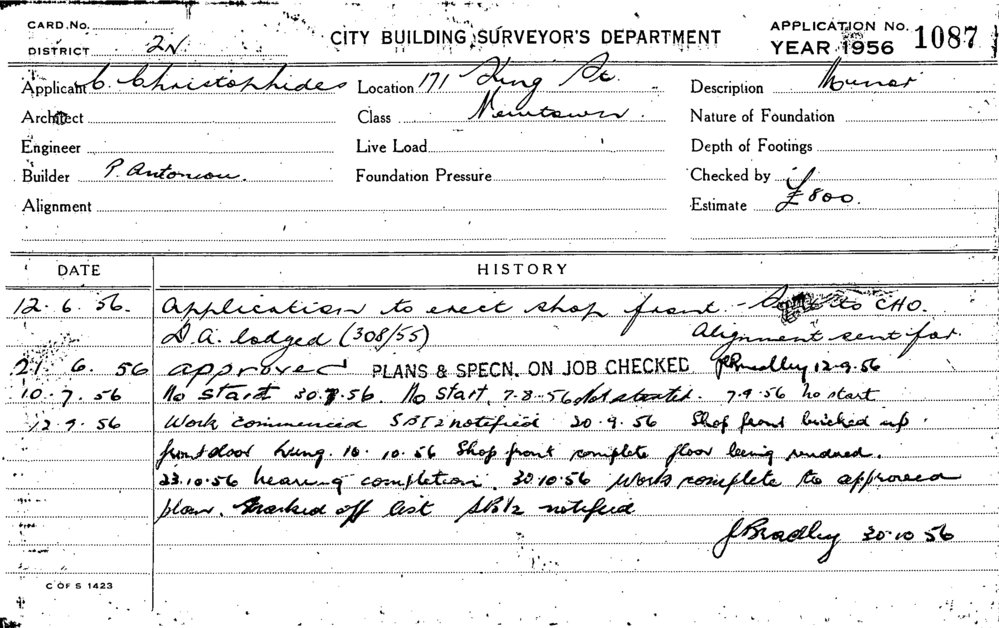 CARD No.
DISTRICT 2N
CITY BUILDING SURVEYOR'S DEPARTMENT
APPLICATION No. 1087
YEAR 1956
Applicant C. Christophides Location 171 King St. Description Minor
Architect Class Newtown. Nature of Foundation
Engineer Live Load Depth of Footings
Builder P. Antoniou. Foundation Pressure Checked by
Alignment Estimate £800.
DATE HISTORY
12.6.56. Application to erect shop front. - to CHO.
D.A. lodged (308/55) Alignment sent for.
21.6.56 approved PLANS & SPECN. ON JOB CHECKED JBradley 12.9.56
10.7.56 No start 30.7.56. No start. 7.8.56 Not started. 7.9.56 no start
12.9.56 Work commenced notified 20.9.56 Shop front bricked up.
front door hung. 10.10.56 Shop front complete floor being rendered.
23.10.56 nearing completion. 30.10.56 Work complete to approved
plan. Marked off list notified
JBradley 30.10.56
C OF S 1423